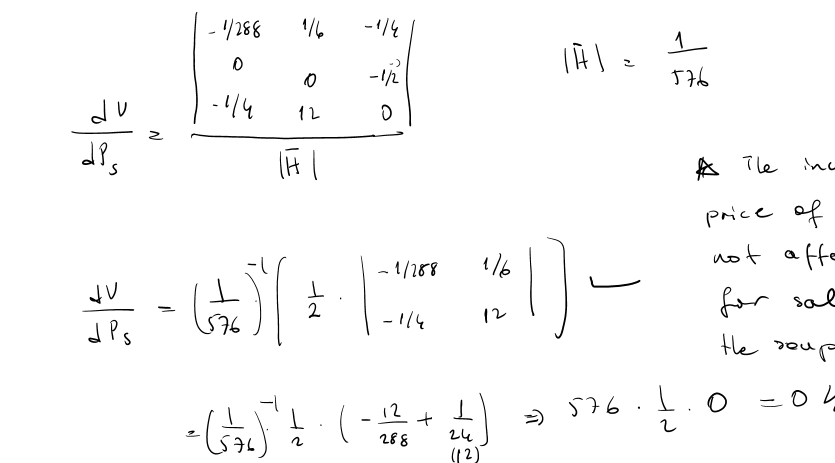 dV/dPₛ = | -1/288 1/6 -1/4 |
| 0 0 -1/2 |
| -1/4 12 0 |
/ |H̄|
|H̄| = 1/576
The inc
price of
not affe
for sal
the soup
dV/dPₛ = (1/576)⁻¹ [ 1/2 · | -1/288 1/6 |
| -1/4 12 | ]
= (1/576)⁻¹ 1/2 · ( - 12/288 + 1/24 ) ⇒ 576 · 1/2 · 0 = 0
(12)